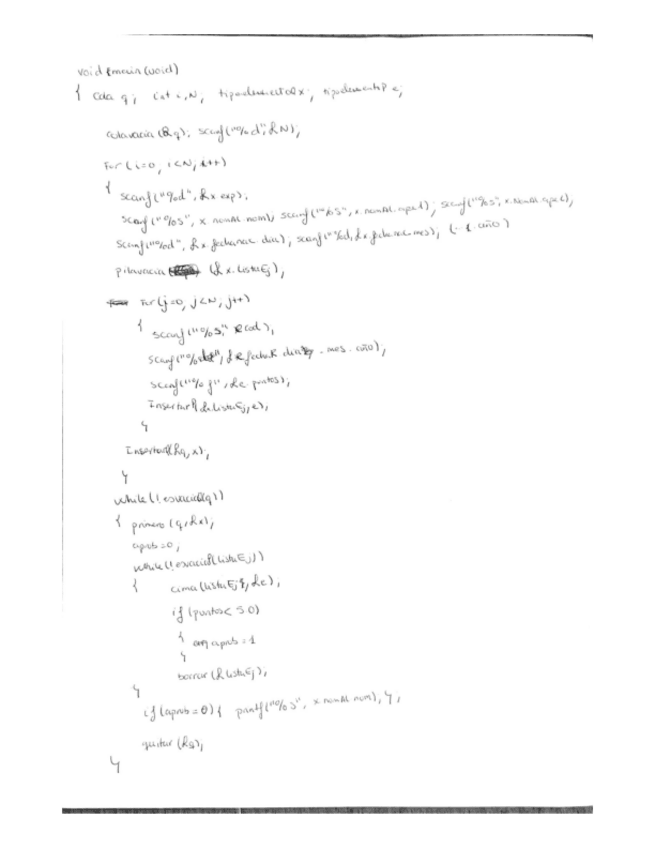 void main(void)
{ Cola q; int i,N; tipoelementoQ x; tipoelementoP e;
colavacia(&q); scanf("%d",&N);
For (i=0, i<N; i++)
{
scanf("%d", &x.exp);
scanf("%s", x.nomAl.nom); scanf("%s", x.nomAl.ape1); scanf("%s", x.nomAl.ape2);
scanf("%d", &x.fechanac.dia); scanf("%d, &x.fechanac.mes); (.. año)
pilavacia (&x.listaEj);
For (j=0, j<N; j++)
{
scanf("%s", cod);
scanf(" , dia . mes . año);
scanf("%f", &e.puntos);
InsertarP(&.listaEj, e);
}
InsertarQ(&q, x);
}
while(!esvaciaQ(q))
{ primero (q,&x);
aprob=0;
while(!esvaciaP(listaEj))
{ cima(listaEj, &e);
if (puntos<50)
{
aprob=1
}
borrar (&listaEj);
}
if (aprob=0){ printf("%s", x.nomAl.nom); };
quitar (&q);
}